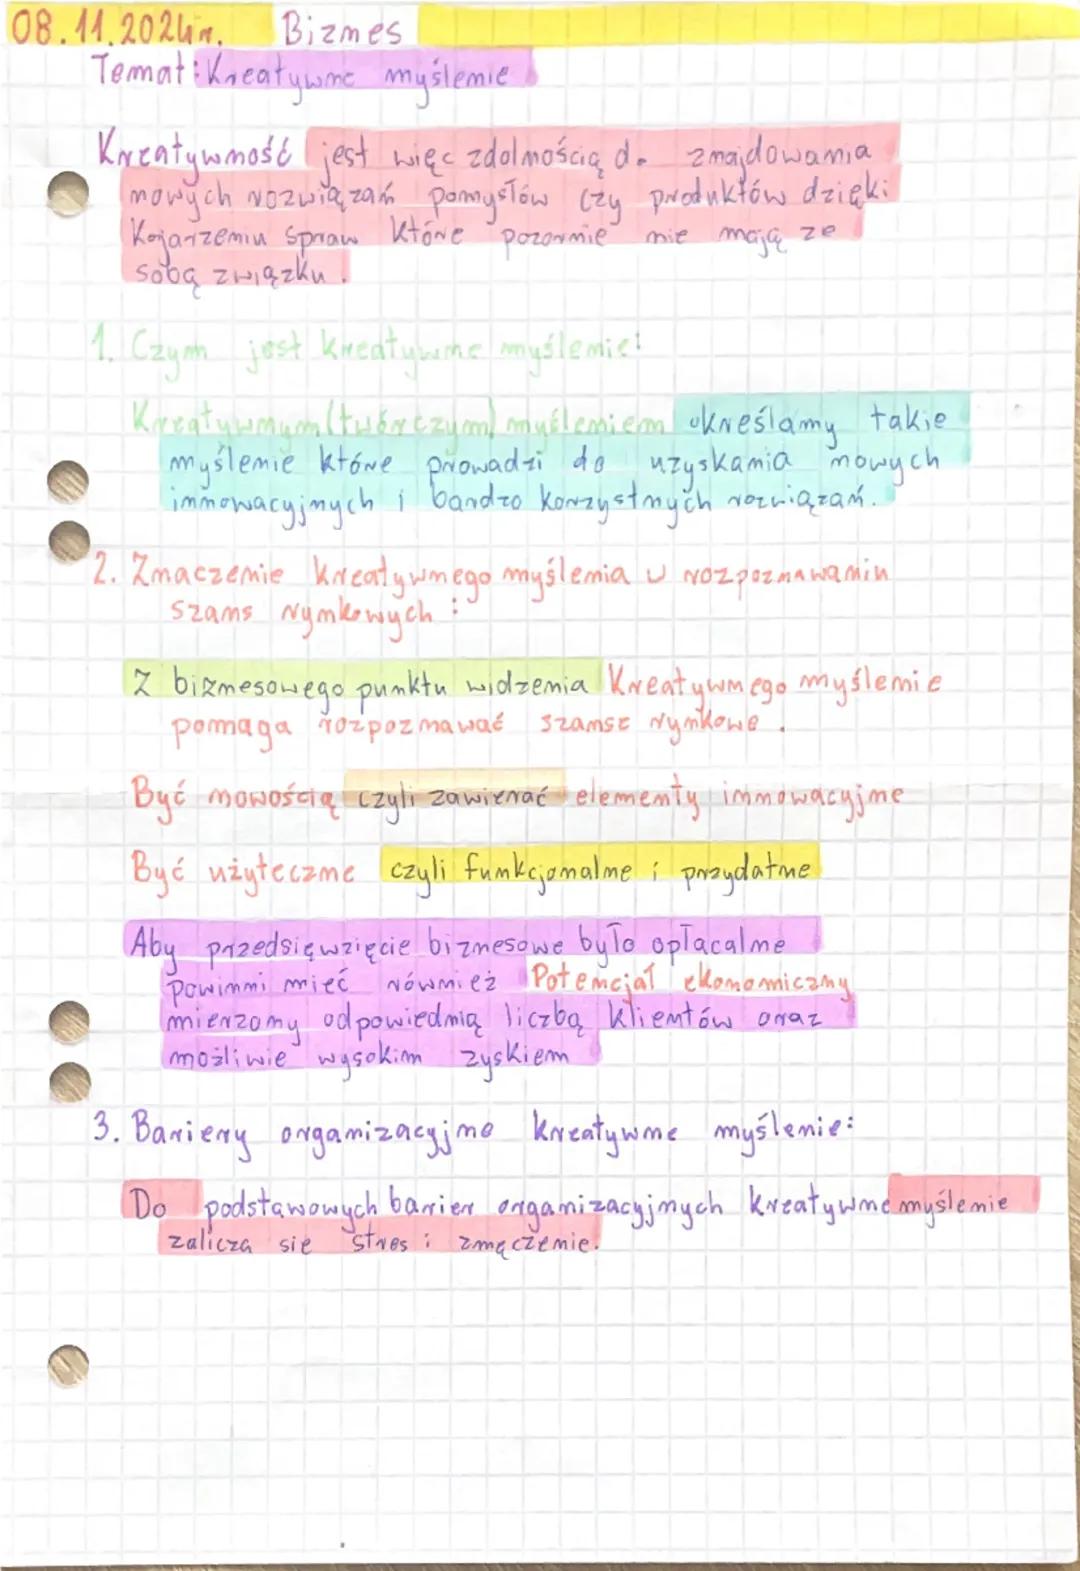 08.11.2024r. Biznes
Temat: Kreatywne myślenie
Kreatywność jest więc zdolnością do znajdowania
nowych rozwiązań pomysłów czy produktów dzięki
Kojarzeniu spraw które pozornie nie mają ze
sobą związku.
1. Czym jest kreatywne myślenie:
Kreatywnym (twórczym) myśleniem określamy takie
myślenie które prowadzi do uzyskania nowych
innowacyjnych i bardzo korzystnych rozwiązań.
2. Znaczenie kreatywnego myślenia w rozpoznawaniu
szans rynkowych:
Z biznesowego punktu widzenia Kreatywnego myślenie
pomaga rozpoznawać szanse rynkowe.
Być nowością czyli zawierać elementy innowacyjne
Być użyteczne czyli funkcjonalne i przydatne
Aby przedsięwzięcie biznesowe było opłacalne
powinni mieć również Potencjał ekonomiczny
mierzony odpowiednią liczbą klientów oraz
możliwie wysokim zyskiem
3. Bariery organizacyjne kreatywne myślenie:
Do podstawowych barier organizacyjnych kreatywne myślenie
zalicza sie stres i zmęczenie.